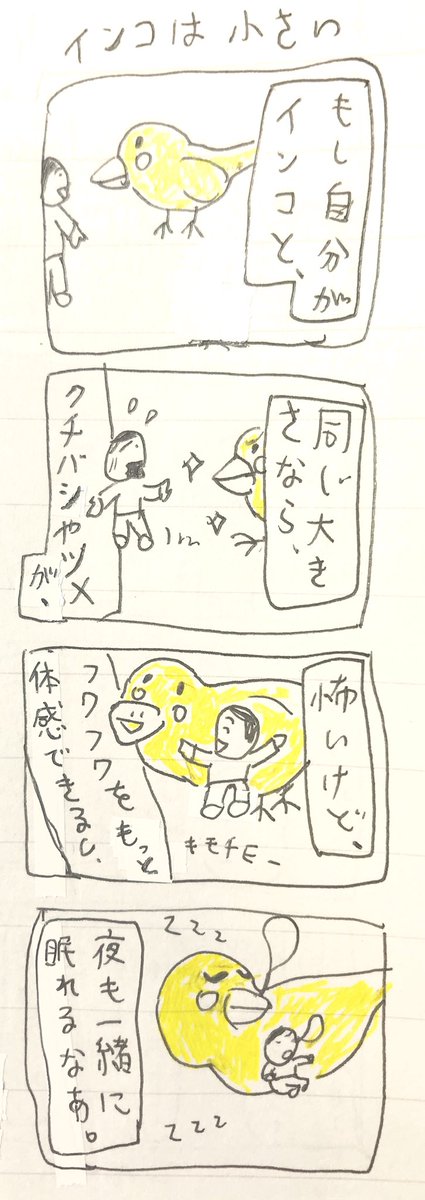 インコは小さい
もし自分が
インコと、
同じ大き
さなら、
クチバシやツメ
が、
怖いけど、
フワフワをもっと
体感できるし、
キモチE-
zzz
夜も一緒に
眠れるなあ。
zzz